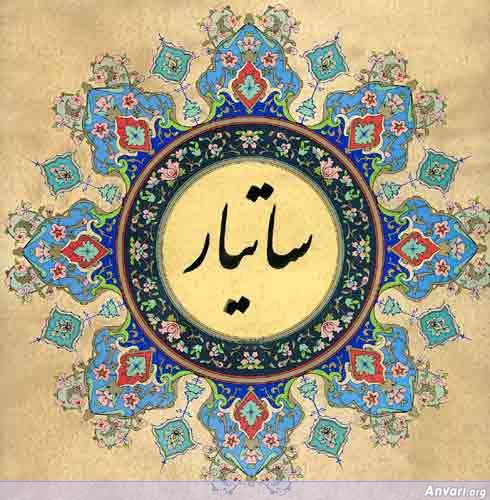 ساتیار
Anvari.org